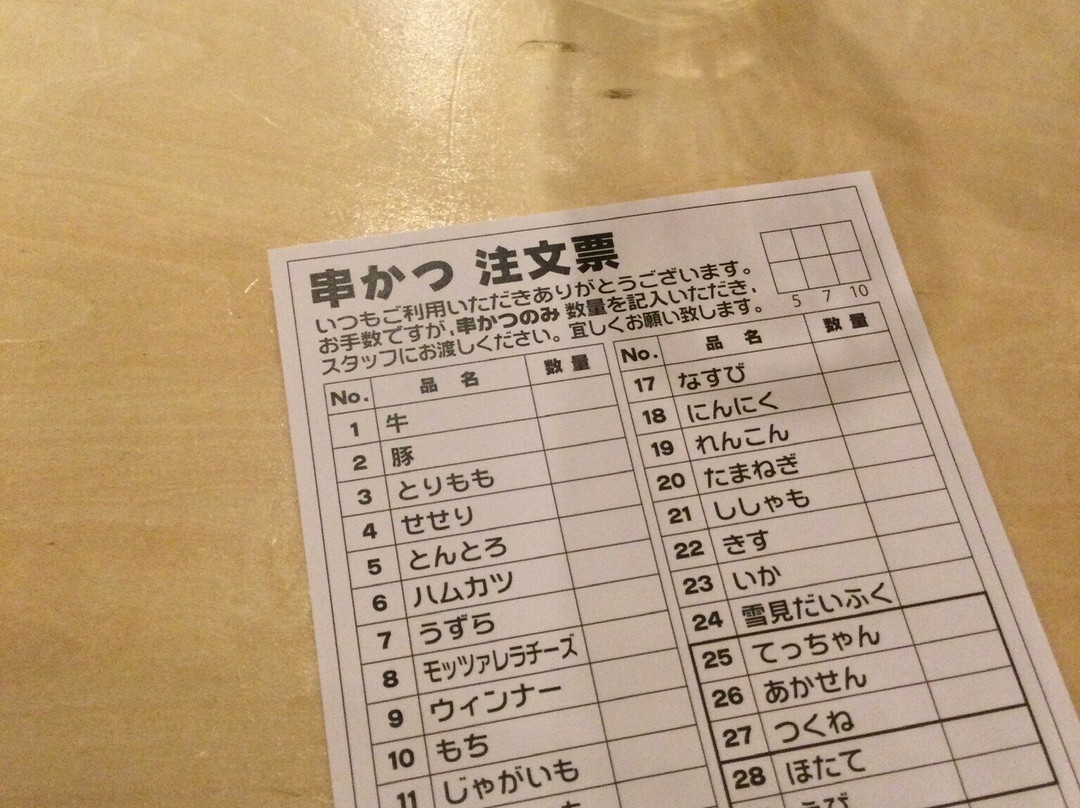 串かつ 注文票
いつもご利用いただきありがとうございます。
お手数ですが、串かつのみ 数量を記入いただき、
スタッフにお渡しください。宜しくお願い致します。
5 7 10
No. 品名 数量
1 牛
2 豚
3 とりもも
4 せせり
5 とんとろ
6 ハムカツ
7 うずら
8 モッツァレラチーズ
9 ウィンナー
10 もち
11 じゃがいも
No. 品名 数量
17 なすび
18 にんにく
19 れんこん
20 たまねぎ
21 ししゃも
22 きす
23 いか
24 雪見だいふく
25 てっちゃん
26 あかせん
27 つくね
28 ほたて
えび